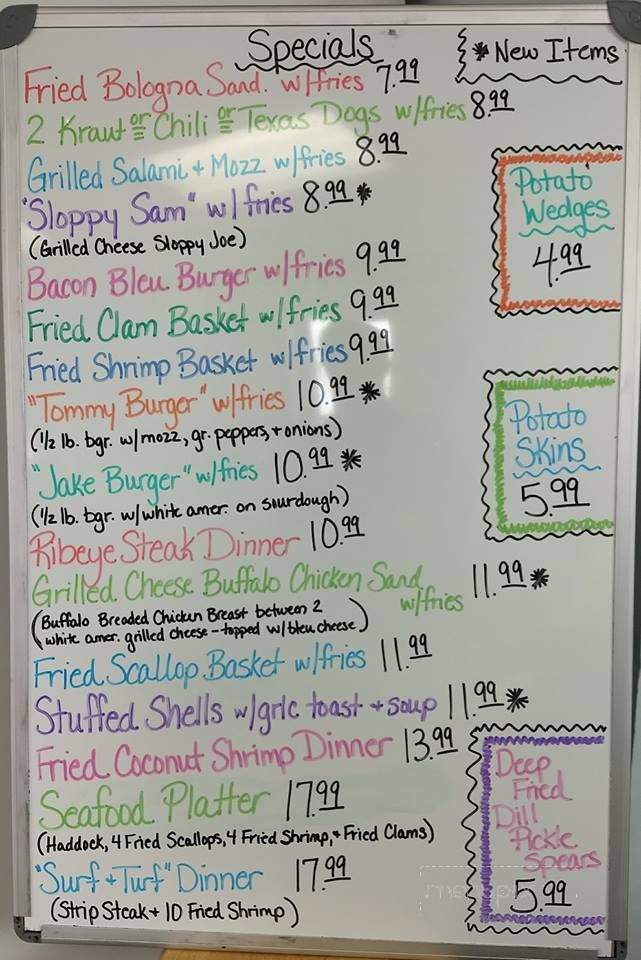 Specials
* New Items
Fried Bologna Sand. w/fries 7.99
2 Kraut or Chili or Texas Dogs w/fries 8.99
Grilled Salami + Mozz w/fries 8.99
"Sloppy Sam" w/fries 8.99 *
(Grilled Cheese Sloppy Joe)
Bacon Bleu Burger w/fries 9.99
Fried Clam Basket w/fries 9.99
Fried Shrimp Basket w/fries 9.99
"Tommy Burger" w/fries 10.99 *
(1/2 lb. bgr. w/mozz, gr. peppers, + onions)
"Jake Burger" w/fries 10.99 *
(1/2 lb. bgr. w/white amer. on sourdough)
Ribeye Steak Dinner 10.99
Grilled Cheese Buffalo Chicken Sand. 11.99 *
w/fries
(Buffalo Breaded Chicken Breast between 2
white amer. grilled cheese - topped w/bleu cheese)
Fried Scallop Basket w/fries 11.99
Stuffed Shells w/grlc toast + soup 11.99 *
Fried Coconut Shrimp Dinner 13.99
Seafood Platter 17.99
(Haddock, 4 Fried Scallops, 4 Fried Shrimp, + Fried Clams)
"Surf + Turf" Dinner 17.99
(Strip Steak + 10 Fried Shrimp)
Potato
Wedges
4.99
Potato
Skins
5.99
Deep
Fried
Dill
Pickle
Spears
5.99